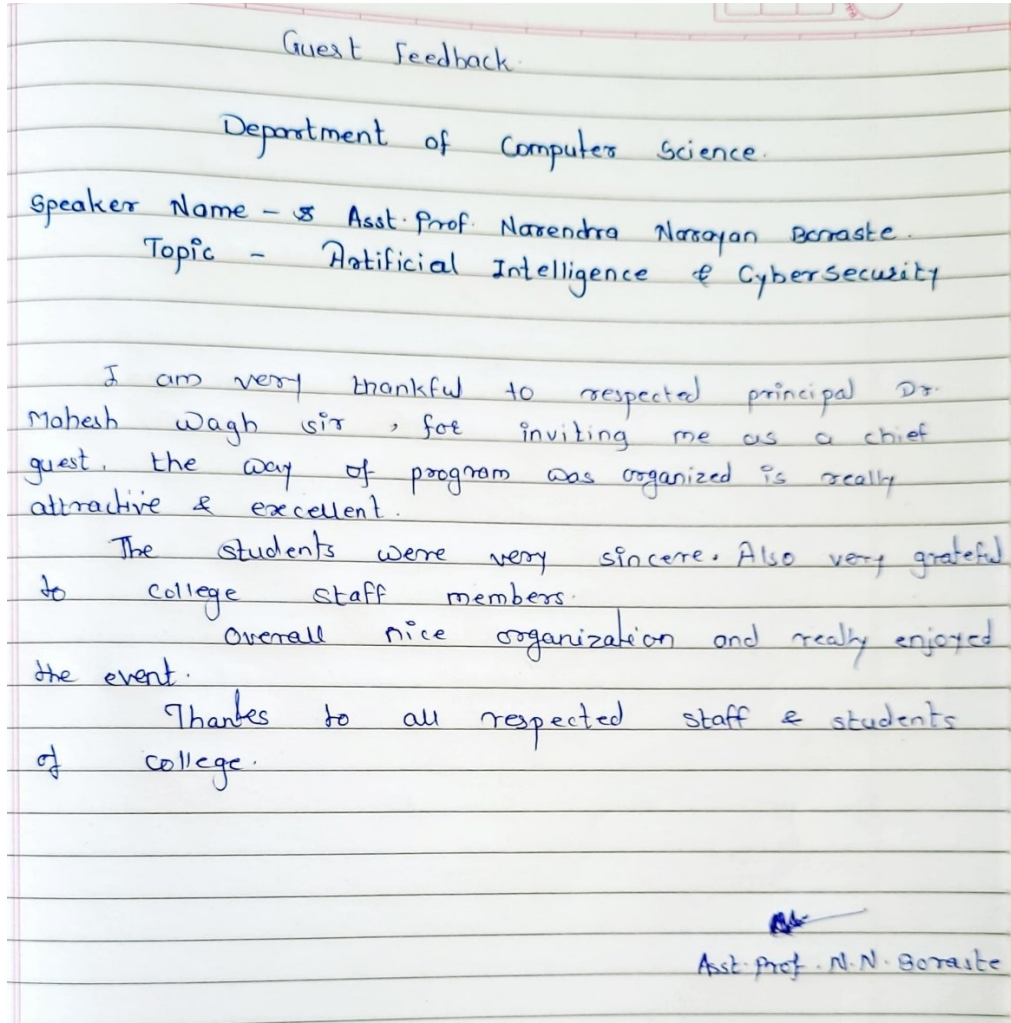 Guest Feedback.
Department of Computer Science.
Speaker Name - Asst. Prof. Narendra Narayan Boraste.
Topic - Artificial Intelligence & Cybersecurity
I am very thankful to respected principal Dr.
Mahesh Wagh sir, for inviting me as a chief
guest. the way of program was organized is really
attractive & excellent.
The students were very sincere. Also very grateful
to college staff members.
Overall nice organization and really enjoyed
the event.
Thanks to all respected staff & students
of college.
Asst. Prof. N.N. Boraste